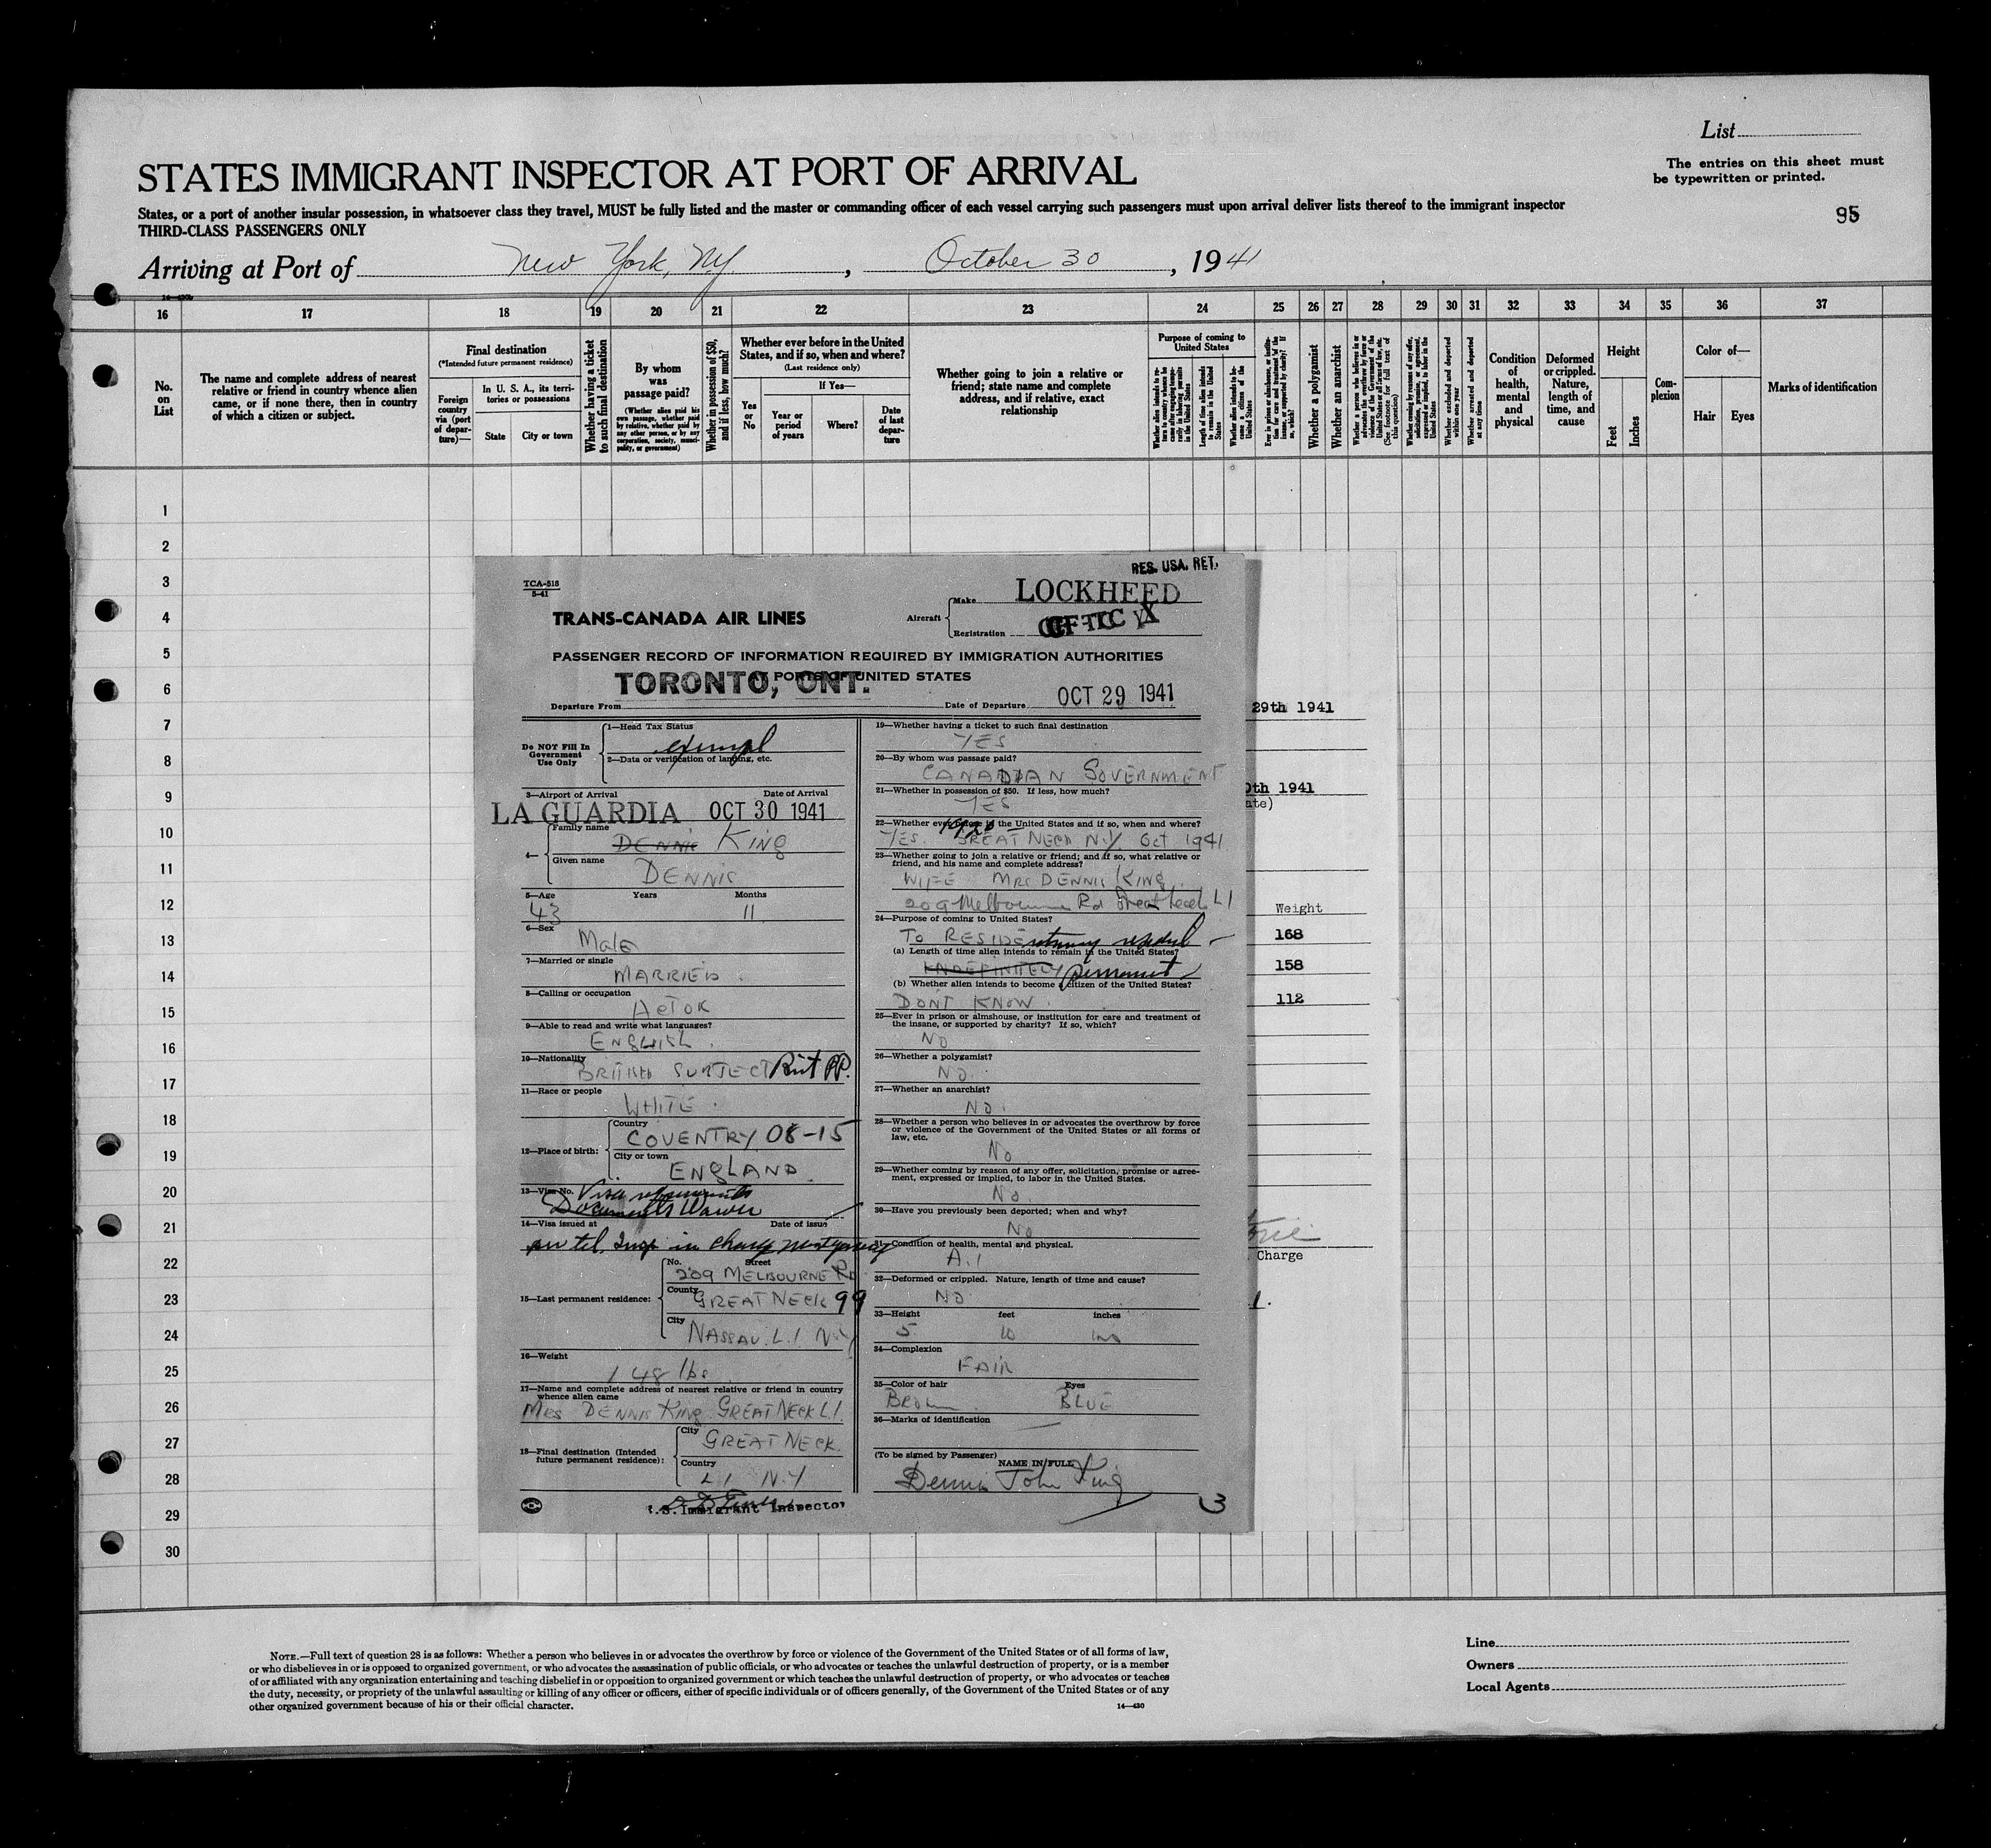 List
The entries on this sheet must
be typewritten or printed.
STATES IMMIGRANT INSPECTOR AT PORT OF ARRIVAL
States, or a port of another insular possession, in whatsoever class they travel, MUST be fully listed and the master or commanding officer of each vessel carrying such passengers must upon arrival deliver lists thereof to the immigrant inspector
THIRD-CLASS PASSENGERS ONLY
95
Arriving at Port of New York, NY, October 30, 1941
16 17 18 19 20 21 22 23 24 25 26 27 28 29 30 31 32 33 34 35 36 37
No. on List
The name and complete address of nearest relative or friend in country whence alien came, or if none there, then in country of which a citizen or subject.
Final destination
(*Intended future permanent residence)
Foreign country via (port of departure)—
In U. S. A., its territories or possessions
State
City or town
Whether having a ticket to such final destination
By whom was passage paid?
(Whether alien paid his own passage, whether paid by relative, whether paid by any other person, or by any corporation, society, municipality, or government)
Whether in possession of $50, and if less, how much?
Whether ever before in the United States, and if so, when and where?
(Last residence only)
If Yes—
Yes or No
Year or period of years
Where?
Date of last departure
Whether going to join a relative or friend; state name and complete address, and if relative, exact relationship
Purpose of coming to United States
Whether a polygamist
Whether an anarchist
Condition of health, mental and physical
Deformed or crippled. Nature, length of time, and cause
Height
Feet
Inches
Complexion
Color of—
Hair
Eyes
Marks of identification
1
2
3
4
5
6
7
8
9
10
11
12
13
14
15
16
17
18
19
20
21
22
23
24
25
26
27
28
29
30
RES. USA. RET.
TCA-518
5-41
TRANS-CANADA AIR LINES
Aircraft
Make LOCKHEED
Registration
PASSENGER RECORD OF INFORMATION REQUIRED BY IMMIGRATION AUTHORITIES
PORTS OF UNITED STATES
Departure From TORONTO, ONT.
Date of Departure OCT 29 1941
Do NOT Fill In
Government
Use Only
1—Head Tax Status
exempt
2—Data or verification of landing, etc.
3—Airport of Arrival
Date of Arrival
LA GUARDIA OCT 30 1941
4—
Family name
DENNIS KING
Given name
DENNIS
5—Age Years Months
43 11
6—Sex
MALE
7—Married or single
MARRIED
8—Calling or occupation
ACTOR
9—Able to read and write what languages?
ENGLISH
10—Nationality
BRITISH SUBJECT Brit PP.
11—Race or people
WHITE
12—Place of birth:
Country
COVENTRY 08-15
City or town
ENGLAND
13—Visa No. Visa requirements
Documents Waived
14—Visa issued at
Date of issue
per tel. Insp in charge
15—Last permanent residence:
No. Street
209 MELBOURNE Rd
County
GREAT NECK 99
City
NASSAU L.I N.Y
16—Weight
148 lbs
17—Name and complete address of nearest relative or friend in country
whence alien came
MRS DENNIS KING GREAT NECK L.I.
18—Final destination (Intended
future permanent residence):
City
GREAT NECK.
Country
L.I N.Y
U.S. Immigrant Inspector
19—Whether having a ticket to such final destination
YES
20—By whom was passage paid?
CANADIAN GOVERNMENT
21—Whether in possession of $50. If less, how much?
YES
22—Whether ever before in the United States and if so, when and where?
YES. GREAT NECK N.Y. Oct 1941
23—Whether going to join a relative or friend; and if so, what relative or
friend, and his name and complete address?
WIFE MRS DENNIS KING
209 Melbourne Rd Great Neck L I
24—Purpose of coming to United States?
TO RESIDE
(a) Length of time alien intends to remain in the United States?
INDEFINITELY permanent
(b) Whether alien intends to become citizen of the United States?
DONT KNOW
25—Ever in prison or almshouse, or institution for care and treatment of
the insane, or supported by charity? If so, which?
NO
26—Whether a polygamist?
NO.
27—Whether an anarchist?
NO.
28—Whether a person who believes in or advocates the overthrow by force
or violence of the Government of the United States or all forms of
law, etc.
No
29—Whether coming by reason of any offer, solicitation, promise or agree-
ment, expressed or implied, to labor in the United States.
No.
30—Have you previously been deported; when and why?
No
31—Condition of health, mental and physical.
A.1
32—Deformed or crippled. Nature, length of time and cause?
NO
33—Height feet inches
5 10 ins
34—Complexion
FAIR
35—Color of hair Eyes
Brown BLUE
36—Marks of identification
(To be signed by Passenger)
NAME IN FULL
Dennis John King
3
29th 1941
0th 1941
ate)
Weight
168
158
112
Charge
NOTE.—Full text of question 28 is as follows: Whether a person who believes in or advocates the overthrow by force or violence of the Government of the United States or of all forms of law,
or who disbelieves in or is opposed to organized government, or who advocates the assassination of public officials, or who advocates or teaches the unlawful destruction of property, or is a member
of or affiliated with any organization entertaining and teaching disbelief in or opposition to organized government or which teaches the unlawful destruction of property, or who advocates or teaches
the duty, necessity, or propriety of the unlawful assaulting or killing of any officer or officers, either of specific individuals or of officers generally, of the Government of the United States or of any
other organized government because of his or their official character.
14—430
Line
Owners
Local Agents